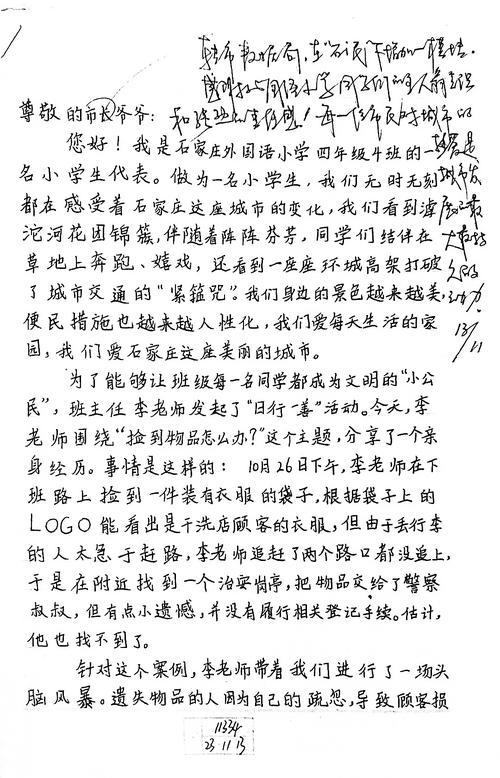 尊敬的市长爷爷:
您好!我是石家庄外国语小学四年级4班的一
名小学生代表。做为一名小学生,我们无时无刻
都在感受着石家庄这座城市的变化,我们看到滹
沱河花团锦簇,伴随着阵阵芬芳,同学们结伴在
草地上奔跑、嬉戏,还看到一座座环城高架打破
了城市交通的“紧箍咒”。我们身边的景色越来越美,
便民措施也越来越人性化,我们爱每天生活的家
园,我们爱石家庄这座美丽的城市。
为了能够让班级每一名同学都成为文明的“小公
民”,班主任李老师发起了“日行一善”活动。今天,李
老师围绕“捡到物品怎么办?”这个主题,分享了一个亲
身经历。事情是这样的:10月26日下午,李老师在下
班路上捡到一件装有衣服的袋子,根据袋子上的
LOGO能看出是干洗店顾客的衣服,但由于丢行李
的人太急于赶路,李老师追赶了两个路口都没追上,
于是在附近找到一个治安岗亭,把物品交给了警察
叔叔,但有点小遗憾,并没有履行相关登记手续。估计,
他也找不到了。
针对这个案例,李老师带着我们进行了一场头
脑风暴。遗失物品的人因为自己的疏忽,导致顾客损
11334
23 11 13